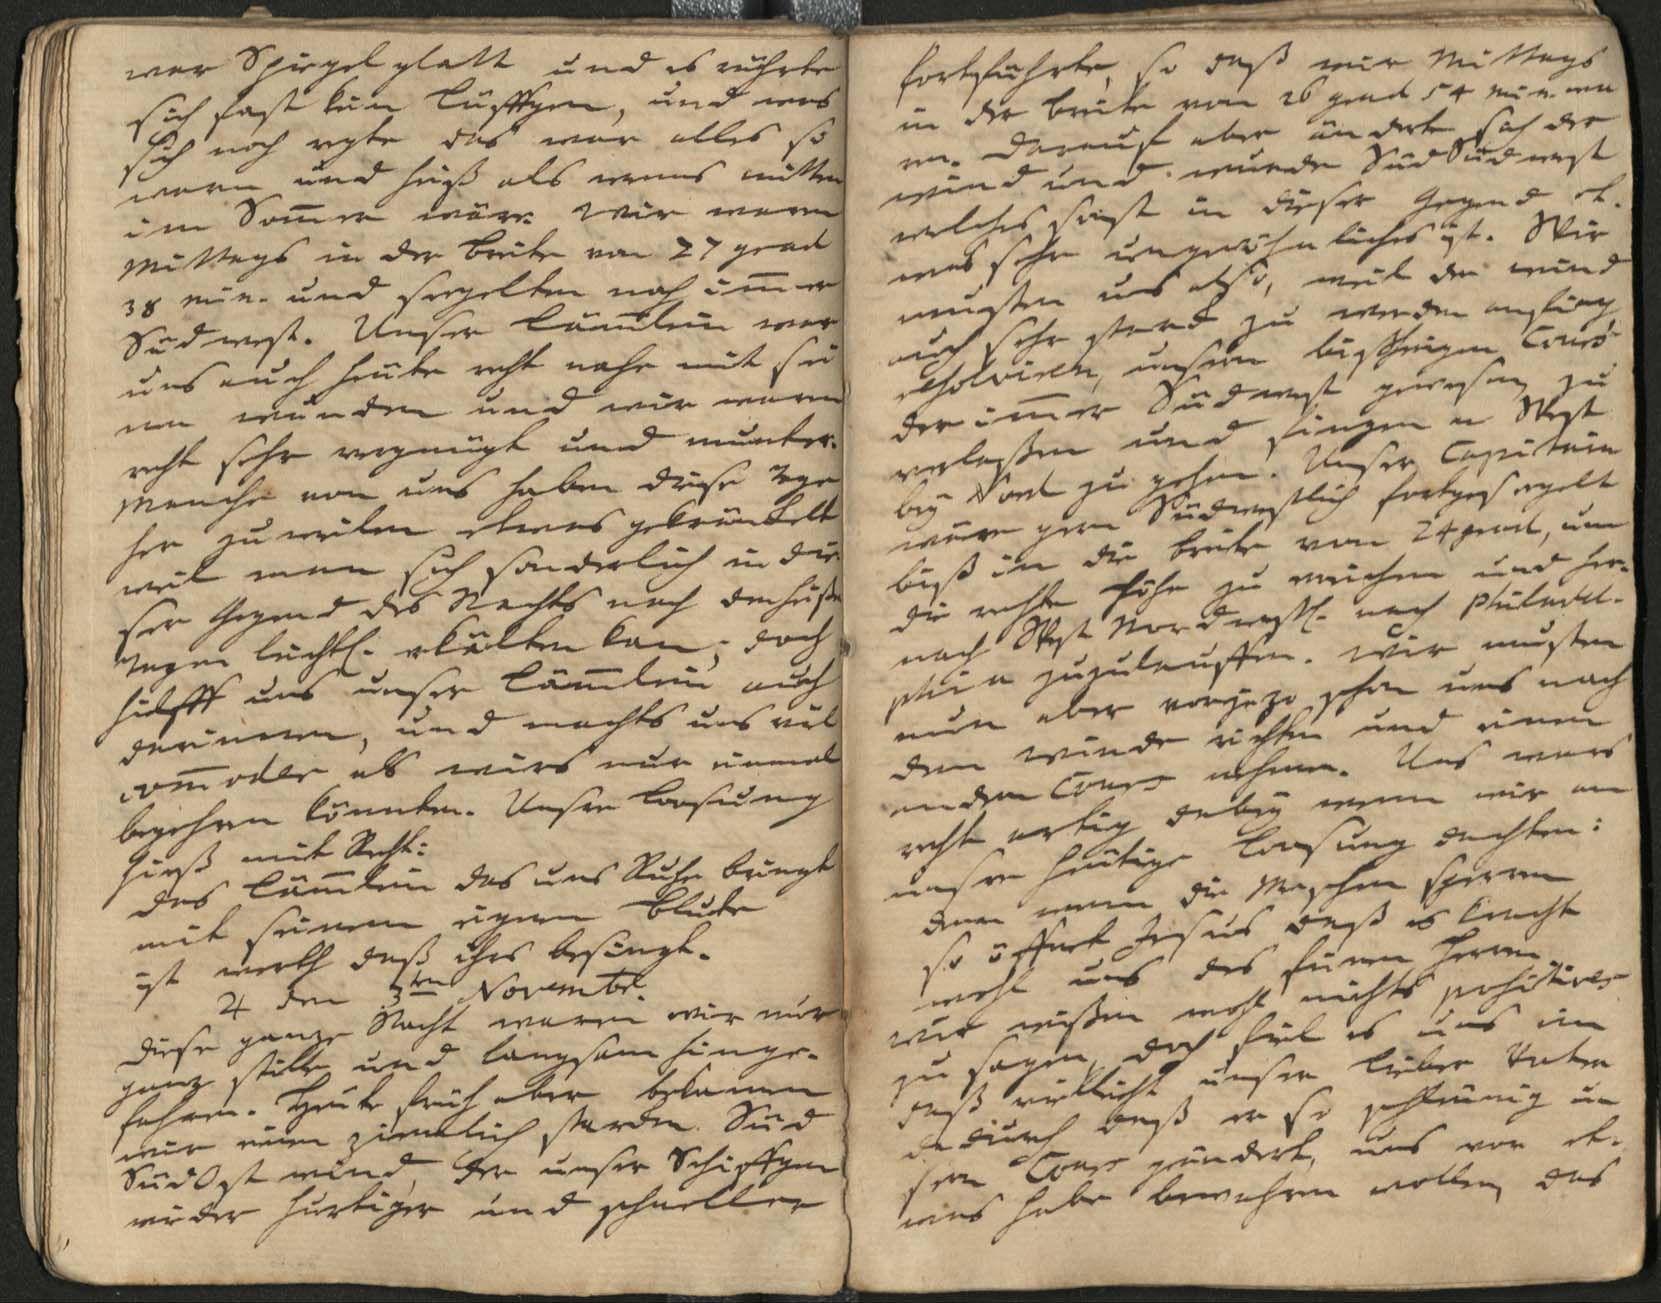 war Spiegel glatt und es rührte
sich fast kein Lüfftgen, und was
sich noch regte das war alles so
warm und heiß als wenns mitten
im Som̅er wäre. Wir waren
Mittags in der Breite von 27 grad
38 min. und seegelten noch im̅er
Südwest. Unser Läm̅lein war
uns auch heute recht nahe mit sei
nen Wunden und wir waren
recht sehr vergnügt und munter.
Manche von uns haben diese Tage
her zuweilen etwas gekränkelt
weil man sich sonderlich in die-
ser Gegend des Nachts nach den heißen
Tagen leichtl. erkälten kan, doch
hilfft uns unser Läm̅lein auch
darinnen, und machts uns viel
com̅oder als wirs nur einmal
begehren könnten. Unsre Loosung
hieß mit Recht:
Das Läm̅lein das uns Ruhe bringt
mit seinem eignen Blute
ist werth daß ihrs besingt.
♃ den 3ten Novembr.
Diese ganze Nacht waren wir nur
ganz stille und langsam hinge-
fahren. Heute früh aber bekamen
wir einen ziemlich starcken Süd
SüdOst wind, der unser Schiffgen
wieder hurtiger und schneller
fortführte, so daß wir Mittags
in der Breite von 26 grad 54 min. wa
ren. Darauf aber änderte sich der
wind und wurde Süd Südwest
welches sonst in dieser Gegend et-
was sehr ungewöhnliches ist. Wir
musten uns also, weil der wind
auch sehr starck zu werden anfing
resolviren, unsern bißherigen Cours
der im̅er Südwest gewesen zu
verlaßen und fingen an West
bey Nord zu gehen. Unser Capitain
wäre gern Südwestlich fortgesegelt
biß in die Breite von 24 grad, um
die rechte Höhe zu erreichen und her-
nach West Nordwestl. nach Philadel-
phia zuzulauffen. Wir musten
nun aber vorjezo schon uns nach
dem winde richten und einen
andern Cours nehmen. Uns wars
recht artig dabey wenn wir an
unsre heutige Loosung dachten:
denn wenn die Menschen sperren
so öffnet Jesus daß es kracht
wohl uns des feinen Herren
Wir wißen wohl nichts positives
zu sagen, doch fiel es uns ein
daß vielleicht unser lieber Vater
dadurch daß er so schleunig un
sern Cours geändert, uns vor et-
was habe bewahren wollen, das